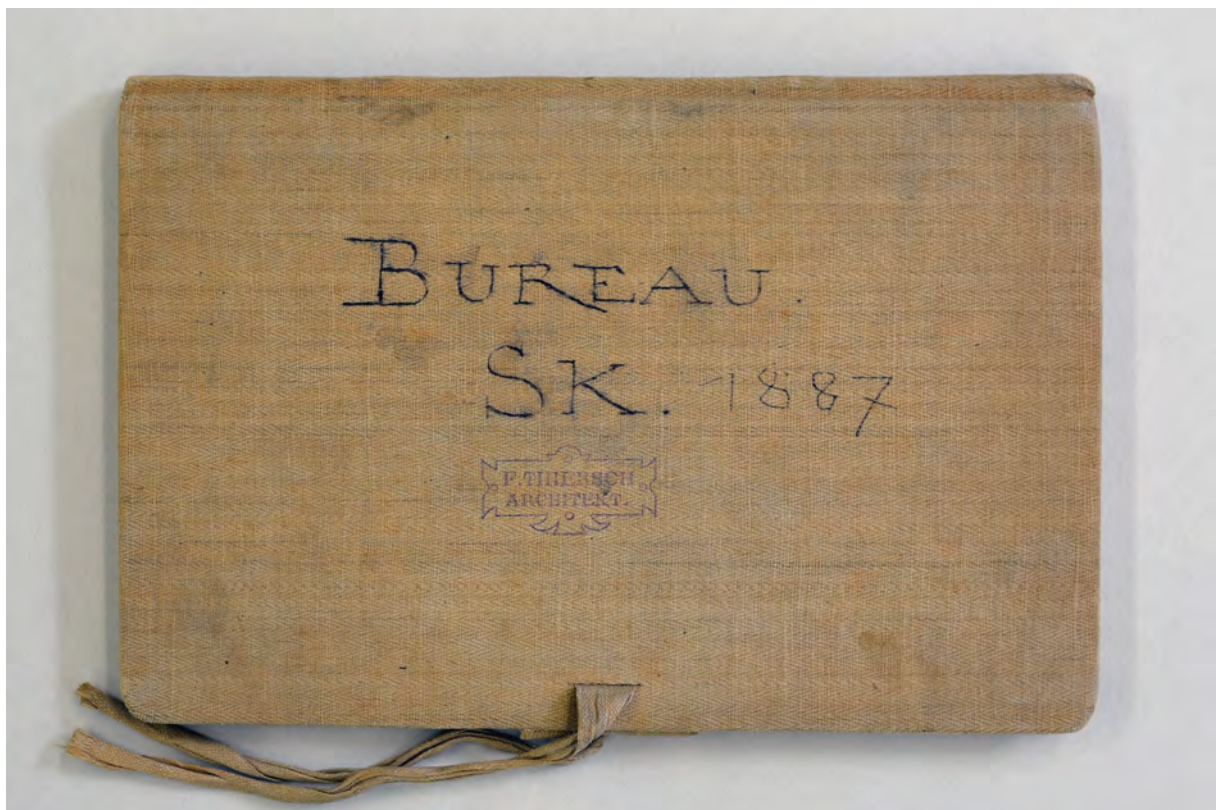 BUREAU.
SK. 1887
F. THIERSCH
ARCHITEKT.